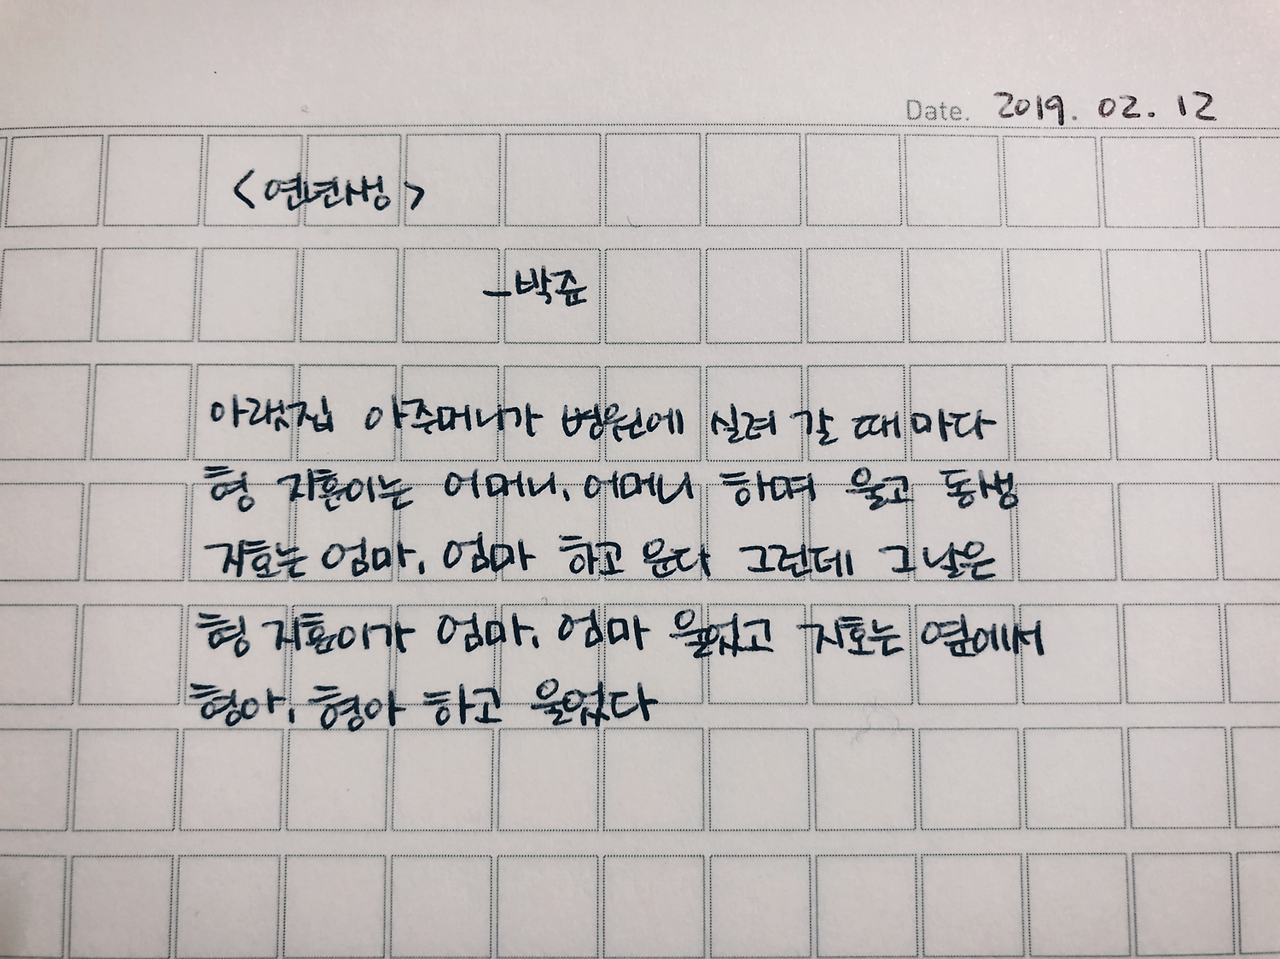 Date. 2019. 02. 12
<연년생>
-박준
아랫집 아주머니가 병원에 실려 갈 때마다
형 지훈이는 어머니, 어머니 하며 울고 동생
지호는 엄마, 엄마 하고 운다 그런데 그날은
형 지훈이가 엄마, 엄마 울었고 지호는 옆에서
형아, 형아 하고 울었다